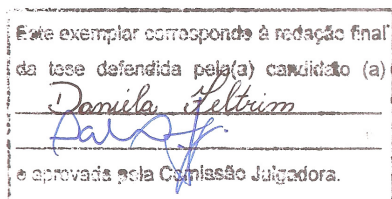 Este exemplar corresponde à redação final
da tese defendida pela(a) candidato (a)
Daniela Feltrim
e aprovada pela Comissão Julgadora.